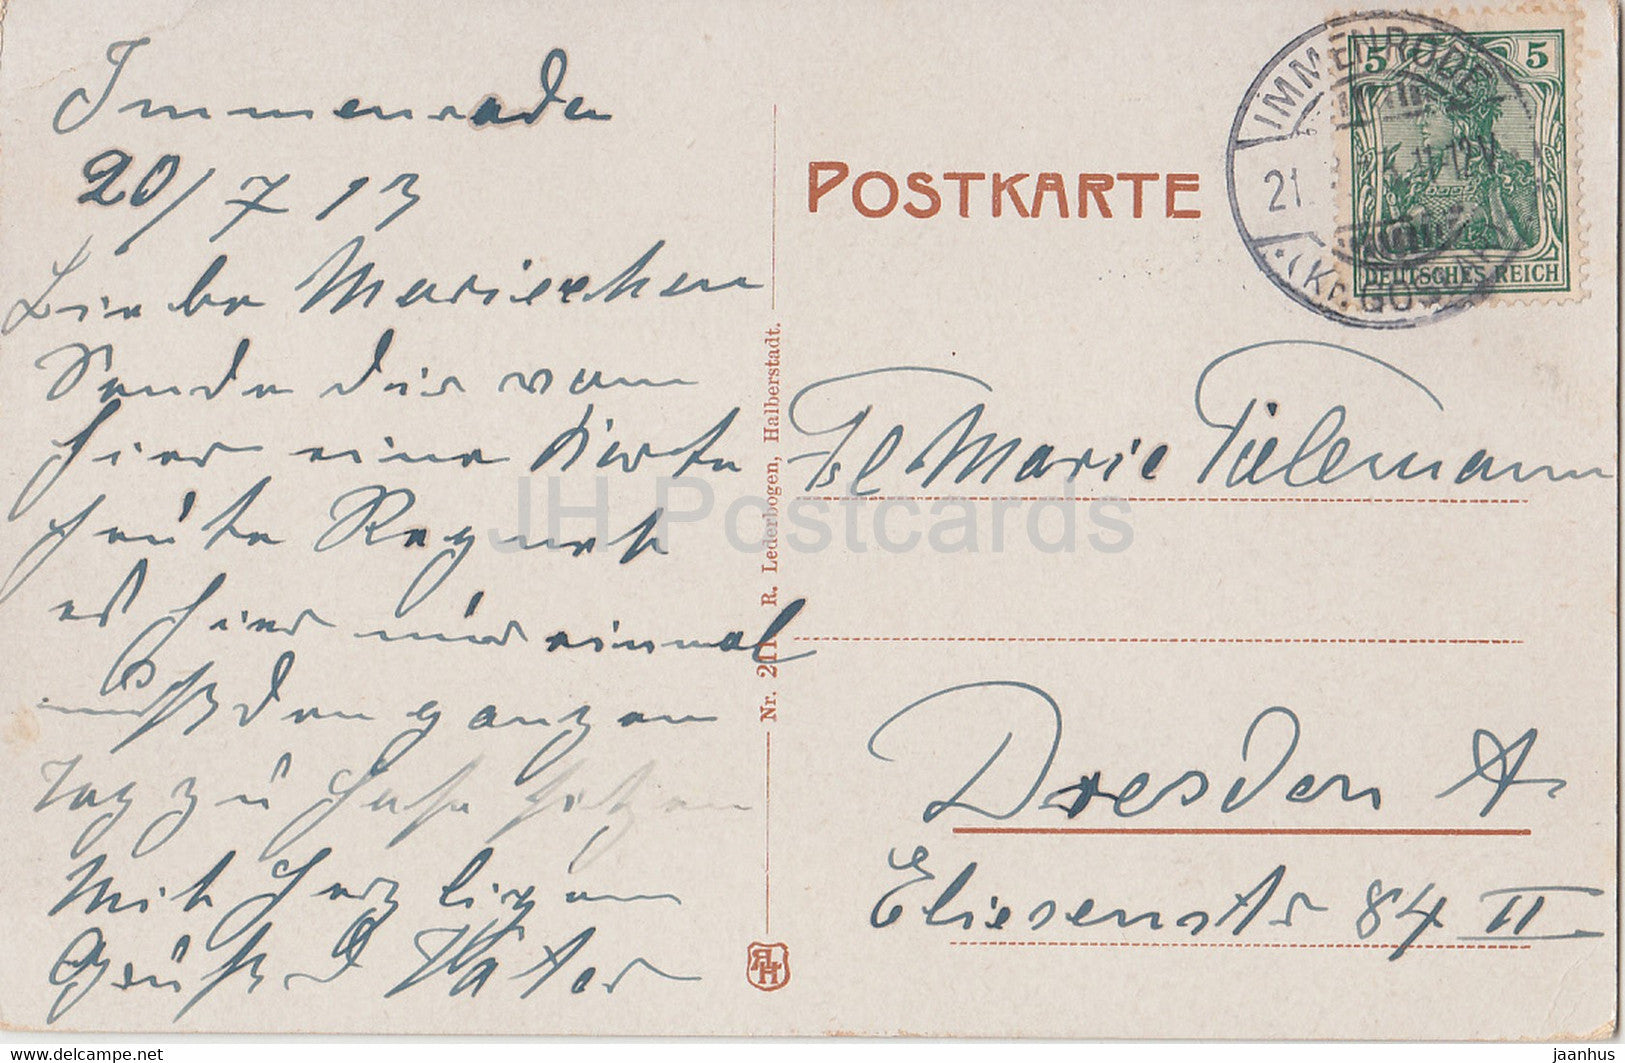 Immenrode
20/7 13
Liebe Marieechen
Sende dir vom
hier eine Karte
heute Regnet
es hier nur einmal
muß den ganzen
Tag zu Hause sitzen
Mit herzligem
Gruß D Vater
POSTKARTE
Nr. 211 R. Lederbogen, Halberstadt.
RLH
IMMENRODE
21. 7. 13. 11-12 V.
(Kr. GOSLAR)
5 5
DEUTSCHES REICH
Frl Marie Tielemann
Dresden A.
Elisenstr 84 II
JH Postcards
www.delcampe.net
jaanhus